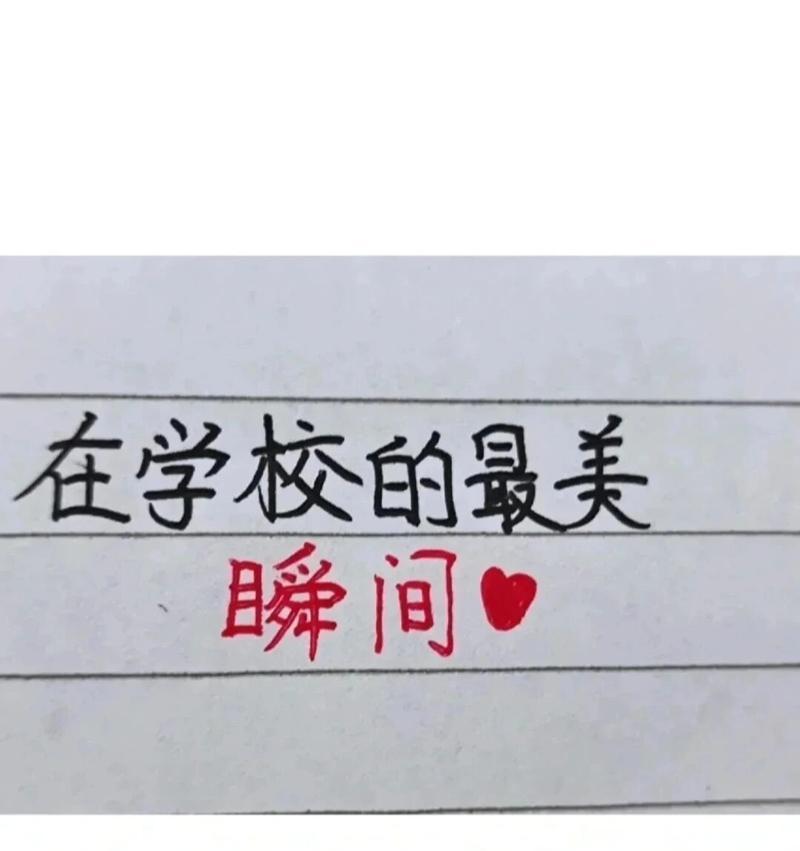 在学校的最美
瞬间❤